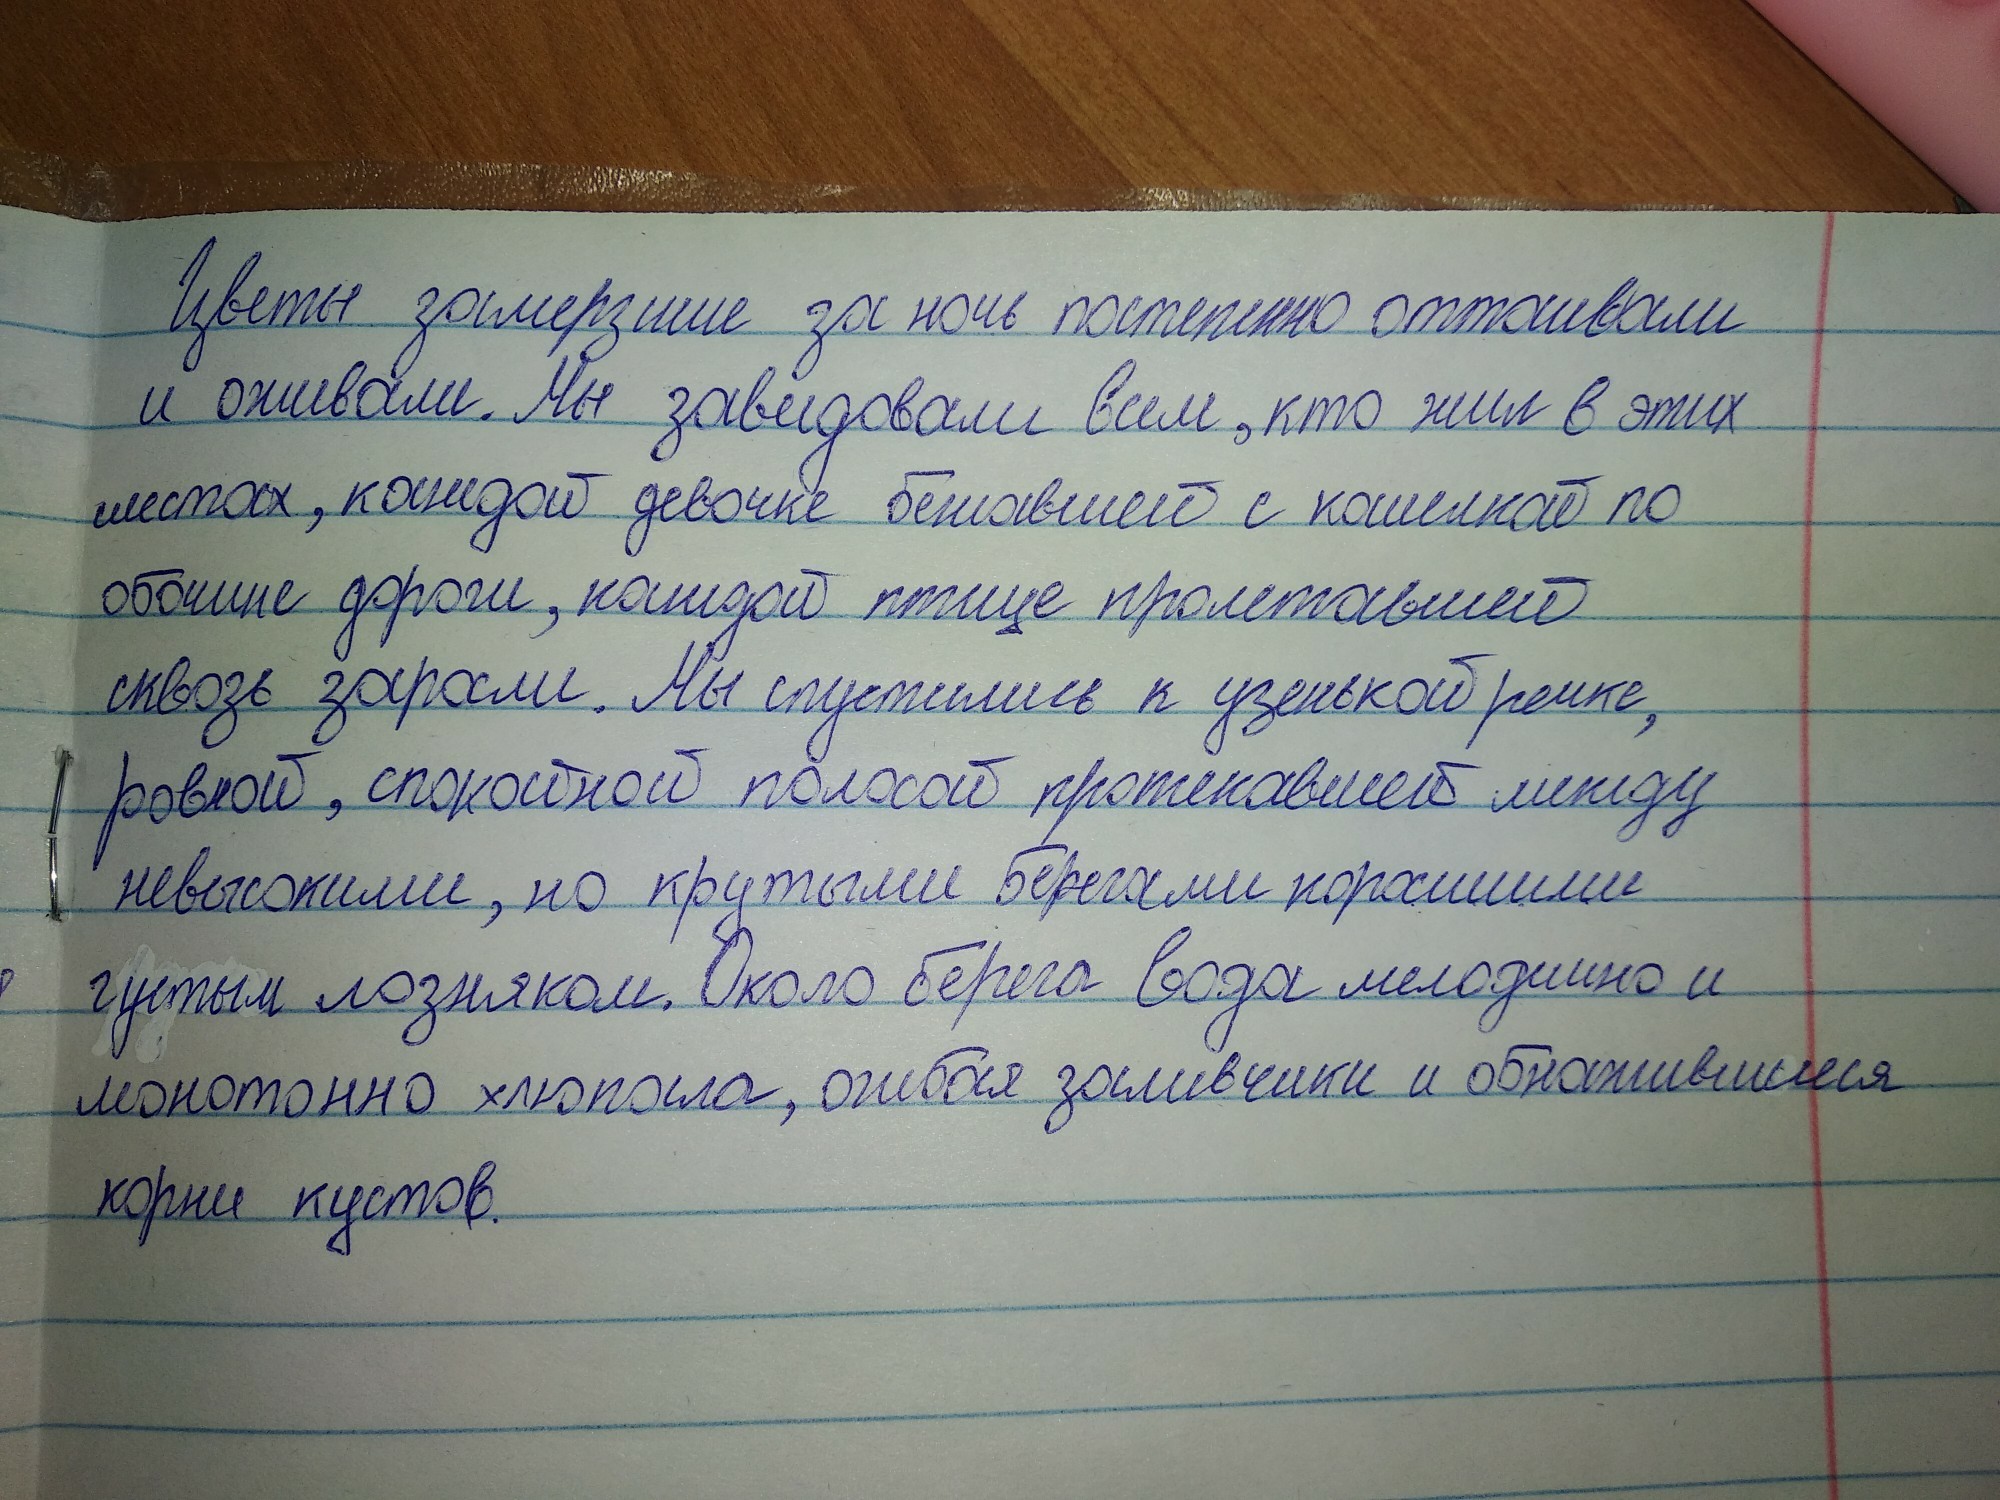 Цветы замерзшие за ночь постепенно оттаивали
и оживали. Мы завидовали всем, кто жил в этих
местах, каждой девочке бежавшей с кошелкой по
обочине дороги, каждой птице пролетавшей
сквозь заросли. Мы спустились к узенькой речке,
ровной, спокойной полосой протекавшей между
невысокими, но крутыми берегами поросшими
густым лозняком. Около берега вода мелодично и
монотонно хлюпала, огибая заливчики и обнажившиеся
корни кустов.